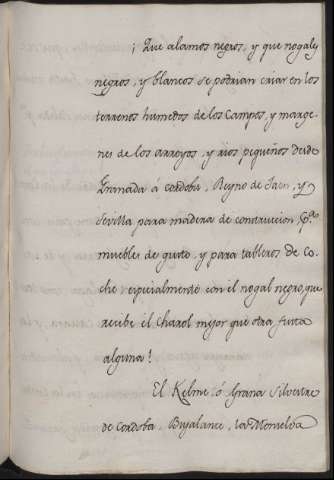 ¡ Que alamos negros, y que nogales
negros, y blancos se podrian criar en los
terrenos humedos de los Campos, y marge-
nes de los arroyos, y rios pequeños desde
Granada á Cordoba, Reyno de Jaen, y
Sevilla para madera de construccion,
muebles de gusto, y para tableros de Co-
che, especialmente con el nogal negro, que
recibe el Charol mejor que otra fusta
alguna!
El Kelme ó Grana Silvestre
de Cordoba, Bujalance, la Montelva